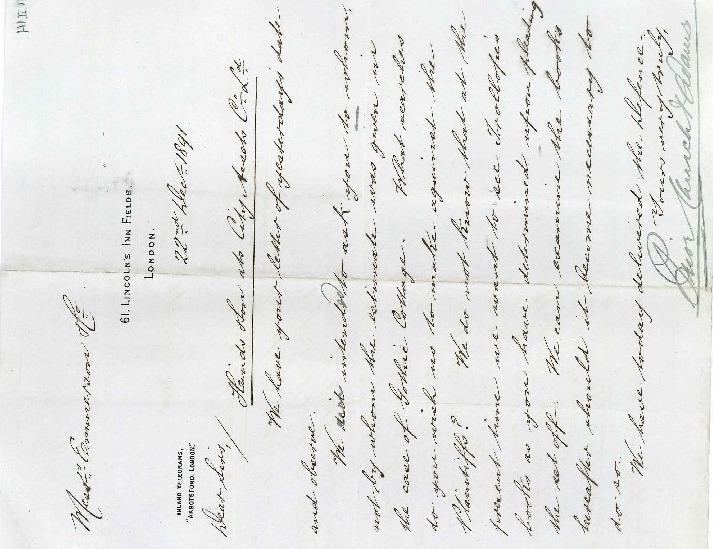 61, LINCOLN'S INN FIELDS,
LONDON.
22nd Dec. 1891
INLAND TELEGRAMS,
"ABBOTSFORD, LONDON."
Dear Sirs,
We have your letter of yesterday's date
and observe.
We did intend to ask you to whom,
not by whom the estimate was given in
the case of Gothic Cottage. What searches
do you wish us to make against the
Plaintiffs? We do not know that at the
present time we want to see Trollopes
books as you have determined upon pleading
the set off. We can examine the books
hereafter should it become necessary to
do so.
We have today delivered the defence.
Yours very truly,